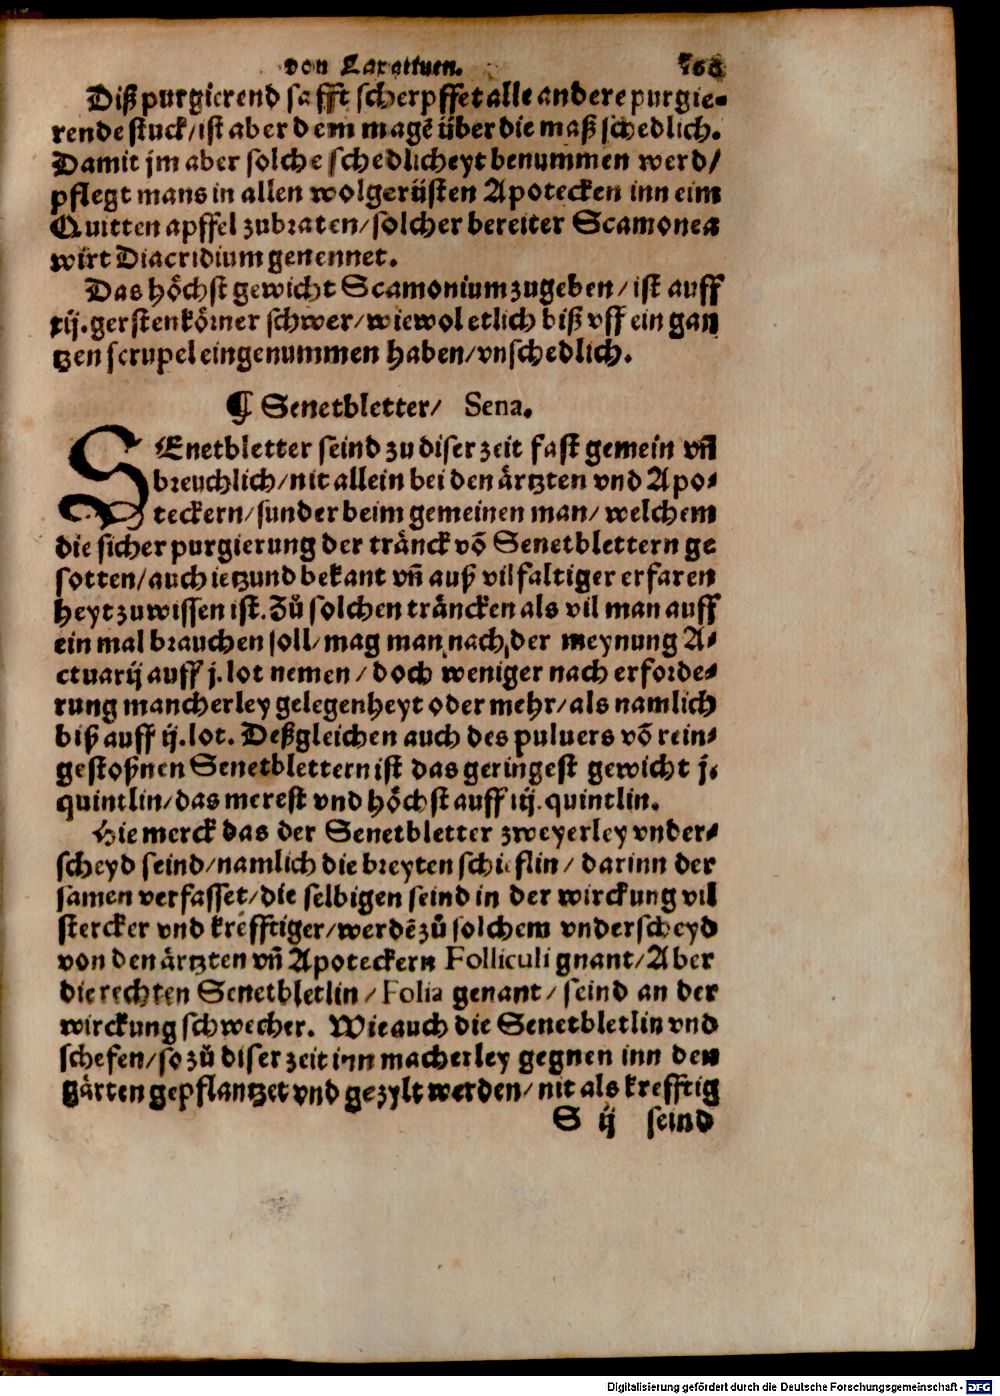 von Laxatiuen.
Diß purgierend safft scherpffet alle andere purgie-
rende stuck/ ist aber dem magē über die maß schedlich.
Damit jm aber solche schedlicheyt benummen werd/
pflegt mans in allen wolgerüsten Apotecken inn eim
Quitten apffel zubraten/ solcher bereiter Scamonea
wirt Diacridium genennet.
Das höchst gewicht Scamonium zugeben/ ist auff
xij. gerstenkörner schwer/ wiewol etlich biß vff ein gan
tzen scrupel eingenummen haben/ vnschedlich.
¶ Senetbletter/ Sena.
SEnetbletter seind zu diser zeit fast gemein vñ
breuchlich/ nit allein bei den ärtzten vnd Apo-
teckern/ sunder beim gemeinen man/ welchem
die sicher purgierung der tränck vō Senetblettern ge
sotten/ auch ietzund bekant vñ auß vilfaltiger erfaren
heyt zuwissen ist. Zů solchen träncken als vil man auff
ein mal brauchen soll/ mag man nach der meynung A-
ctuarij auff j. lot nemen/ doch weniger nach erforde-
rung mancherley gelegenheyt oder mehr/ als namlich
biß auff ij. lot. Deßgleichen auch des puluers vō rein-
gestoßnen Senetblettern ist das geringest gewicht j.
quintlin/ das merest vnd höchst auff iij. quintlin.
Hie merck das der Senetbletter zweyerley vnder-
scheyd seind/ namlich die breyten schieflin/ darinn der
samen verfasset/ die selbigen seind in der wirckung vil
stercker vnd krefftiger/ werdē zů solchem vnderscheyd
von den ärtzten vñ Apoteckern Folliculi gnant/ Aber
die rechten Senetbletlin/ Folia genant/ seind an der
wirckung schwecher. Wie auch die Senetbletlin vnd
schefen/ so zů diser zeit inn macherley gegnen inn den
gärten gepflantzet vnd gezylt werden/ nit als krefftig
S ij seind
Digitalisierung gefördert durch die Deutsche Forschungsgemeinschaft - DFG